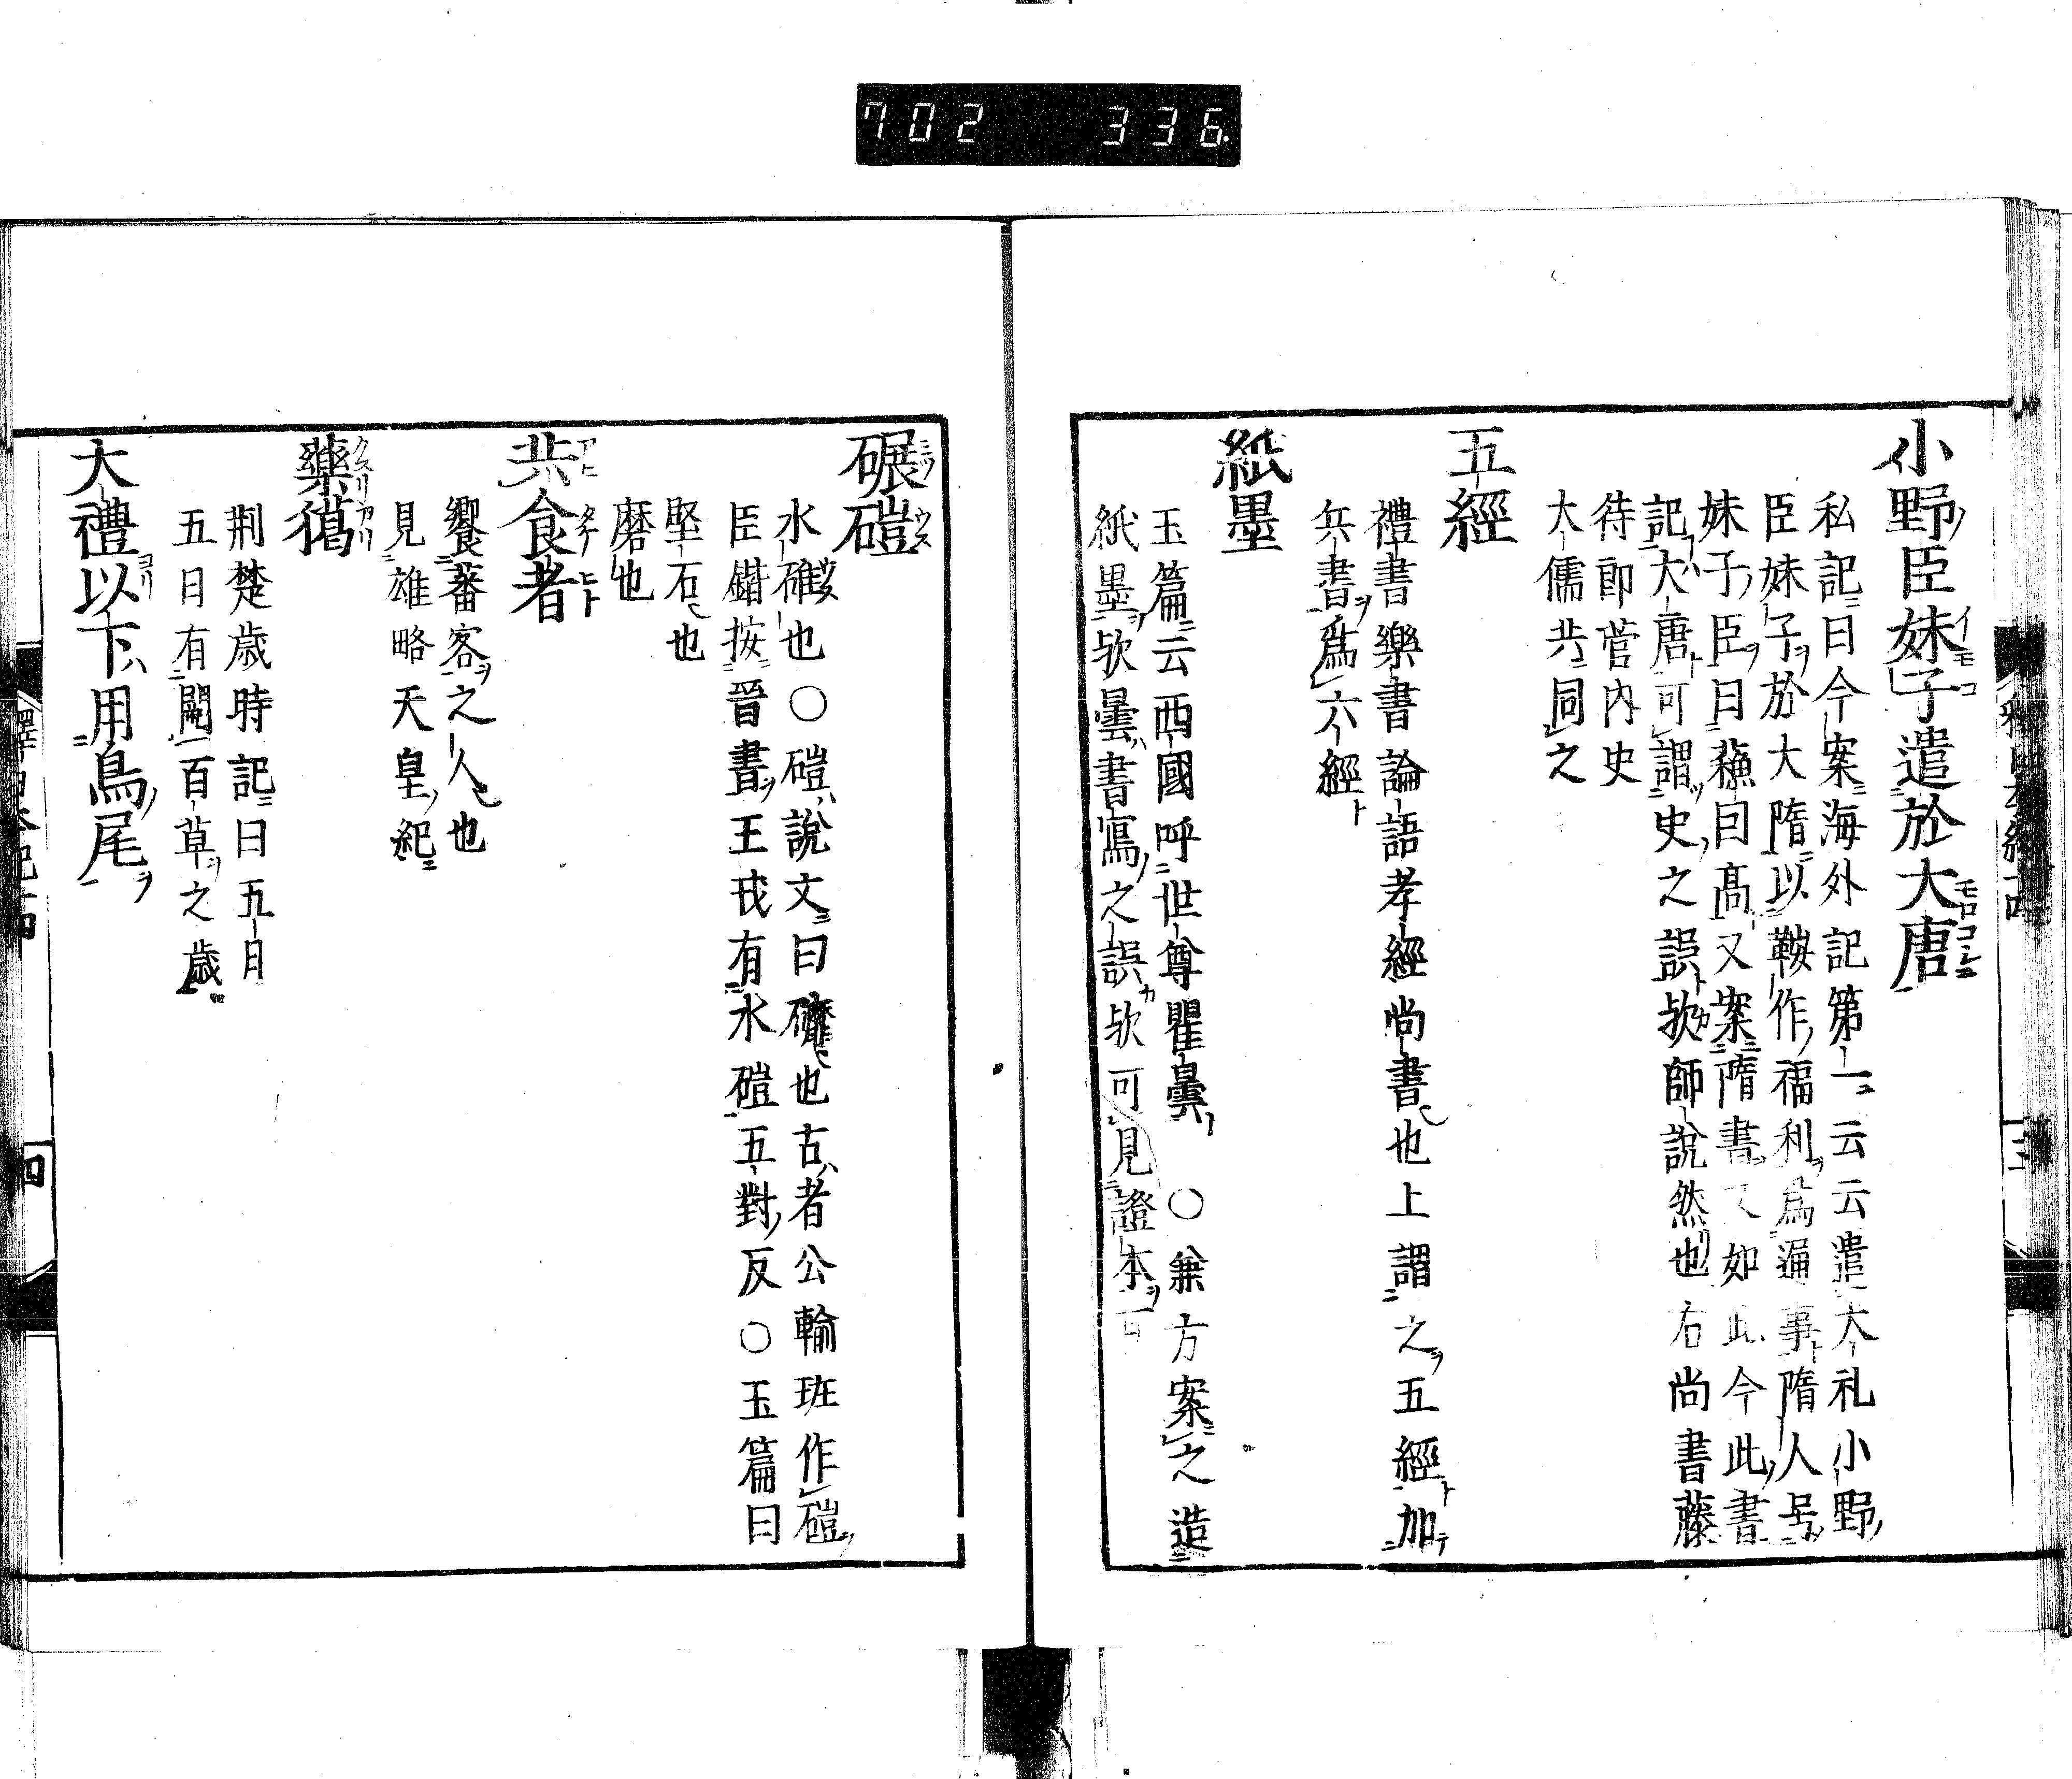 702 336
小野臣妹子遣於大唐
私記曰今案海外記第一云云遣大礼小野
臣妹子於大隋以鞍作福利為通事隋人号
妹子臣曰蘇因高又案隋書又如此今此書
記大唐可謂史之誤歟師說然也右尚書藤
侍郎菅内史
大儒共同之
五經
禮書樂書論語孝經尚書也上謂之五經加
兵書為六經
紙墨
玉篇云西國呼世尊瞿曇〇兼方案之造
紙墨歟曇書寫之誤歟可見證本
碾磑
水碓也〇磑說文曰䃺也古者公輸班作磑
臣鍇按晉書王戎有水磑五對反〇玉篇曰
堅石也
磨也
共食者
饗蕃客之人也
見雄略天皇紀
藥獵
荆楚歳時記曰五月
五日有鬪百草之歳
大禮以下用鳥尾
四